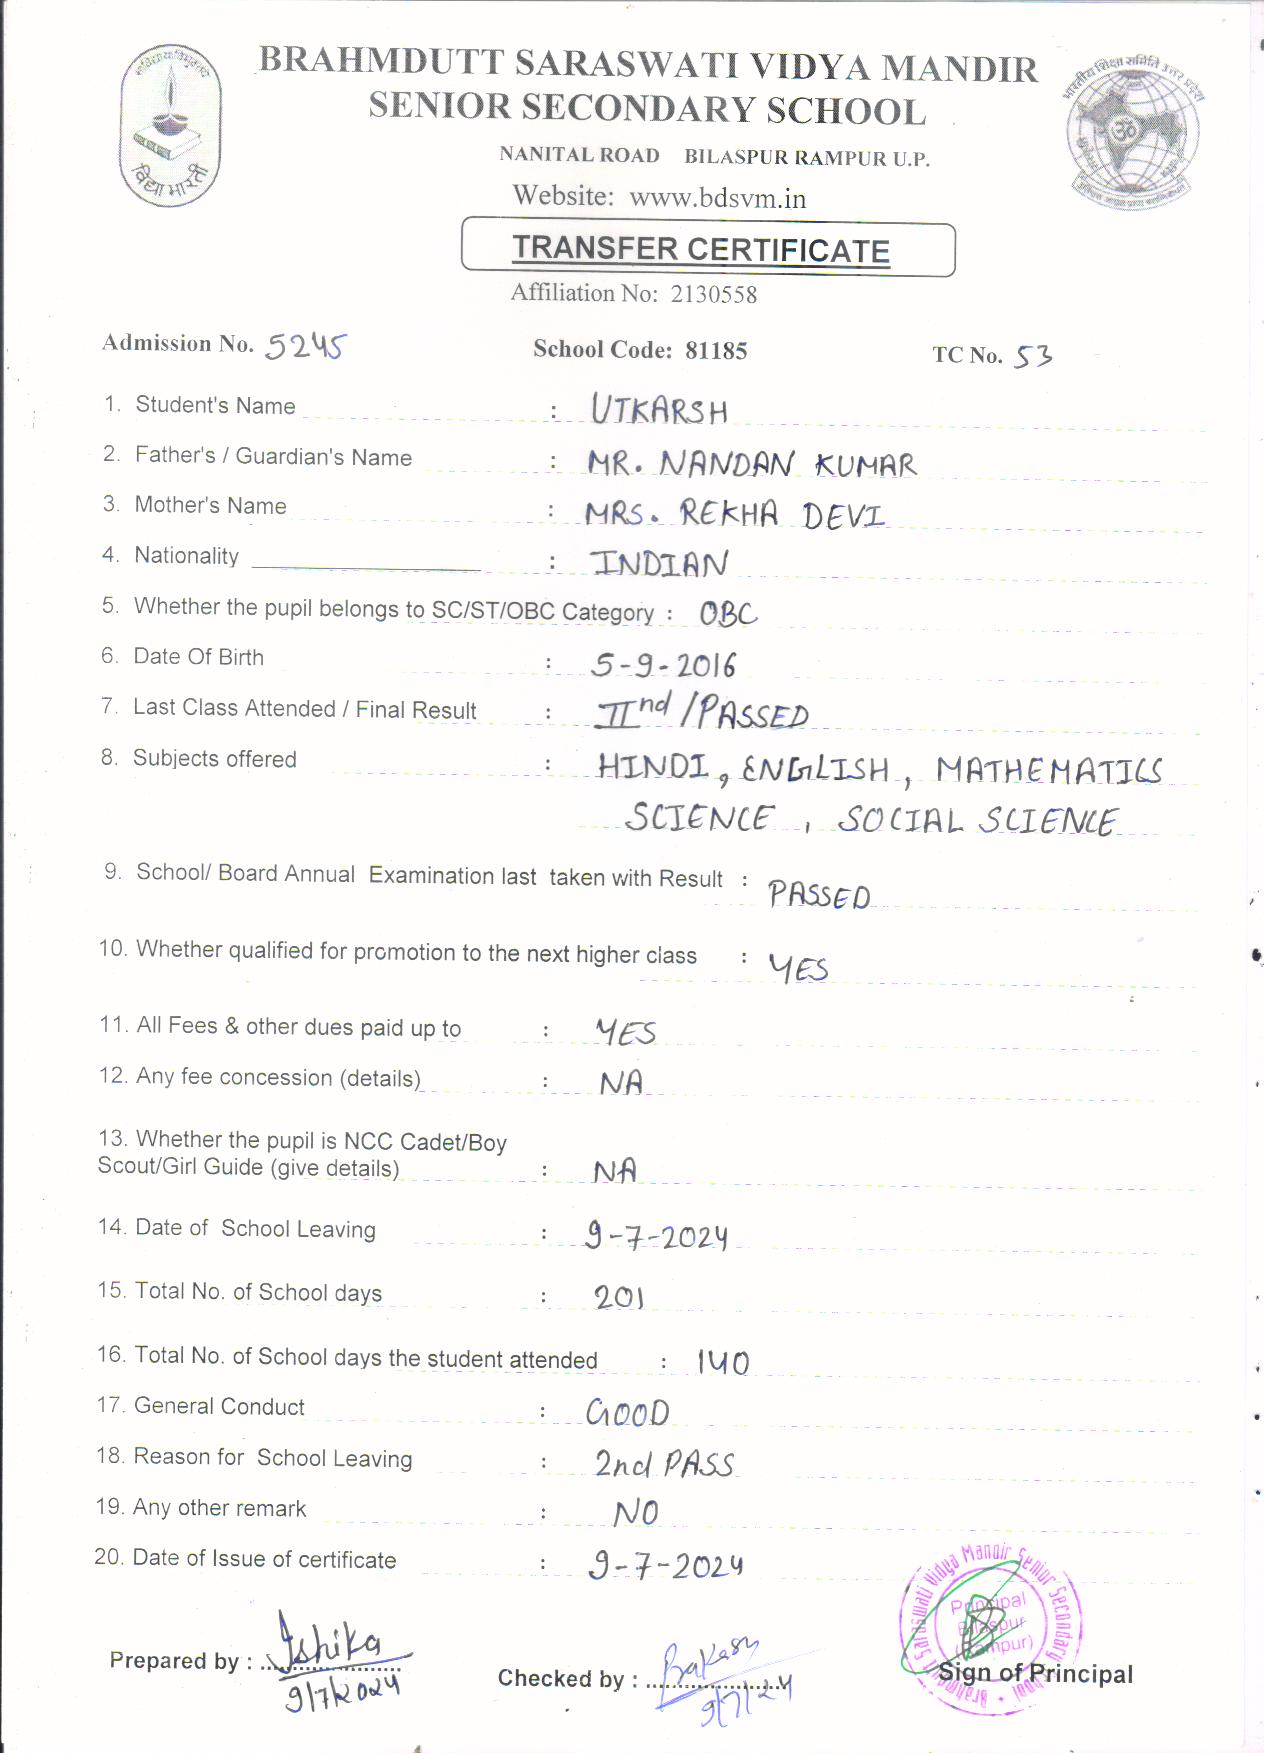 BRAHMDUTT SARASWATI VIDYA MANDIR
SENIOR SECONDARY SCHOOL
NANITAL ROAD BILASPUR RAMPUR U.P.
Website: www.bdsvm.in
TRANSFER CERTIFICATE
Affiliation No: 2130558
विद्या भारती
भारतीय शिक्षा समिति उत्तर प्रदेश
ॐ
Admission No. 5245 School Code: 81185 TC No. 53
1. Student's Name : UTKARSH
2. Father's / Guardian's Name : MR. NANDAN KUMAR
3. Mother's Name : MRS. REKHA DEVI
4. Nationality : INDIAN
5. Whether the pupil belongs to SC/ST/OBC Category : OBC
6. Date Of Birth : 5-9-2016
7. Last Class Attended / Final Result : IInd/PASSED
8. Subjects offered : HINDI, ENGLISH, MATHEMATICS
SCIENCE, SOCIAL SCIENCE
9. School/ Board Annual Examination last taken with Result : PASSED
10. Whether qualified for promotion to the next higher class : YES
11. All Fees & other dues paid up to : YES
12. Any fee concession (details) : NA
13. Whether the pupil is NCC Cadet/Boy
Scout/Girl Guide (give details) : NA
14. Date of School Leaving : 9-7-2024
15. Total No. of School days : 201
16. Total No. of School days the student attended : 140
17. General Conduct : GOOD
18. Reason for School Leaving : 2nd PASS
19. Any other remark : NO
20. Date of Issue of certificate : 9-7-2024
Saraswati Vidya Mandir Senior Secondary School
Principal
Bilaspur
(Rampur)
Prepared by : Ishika
9/7/2024
Checked by :
9/7/24
Sign of Principal